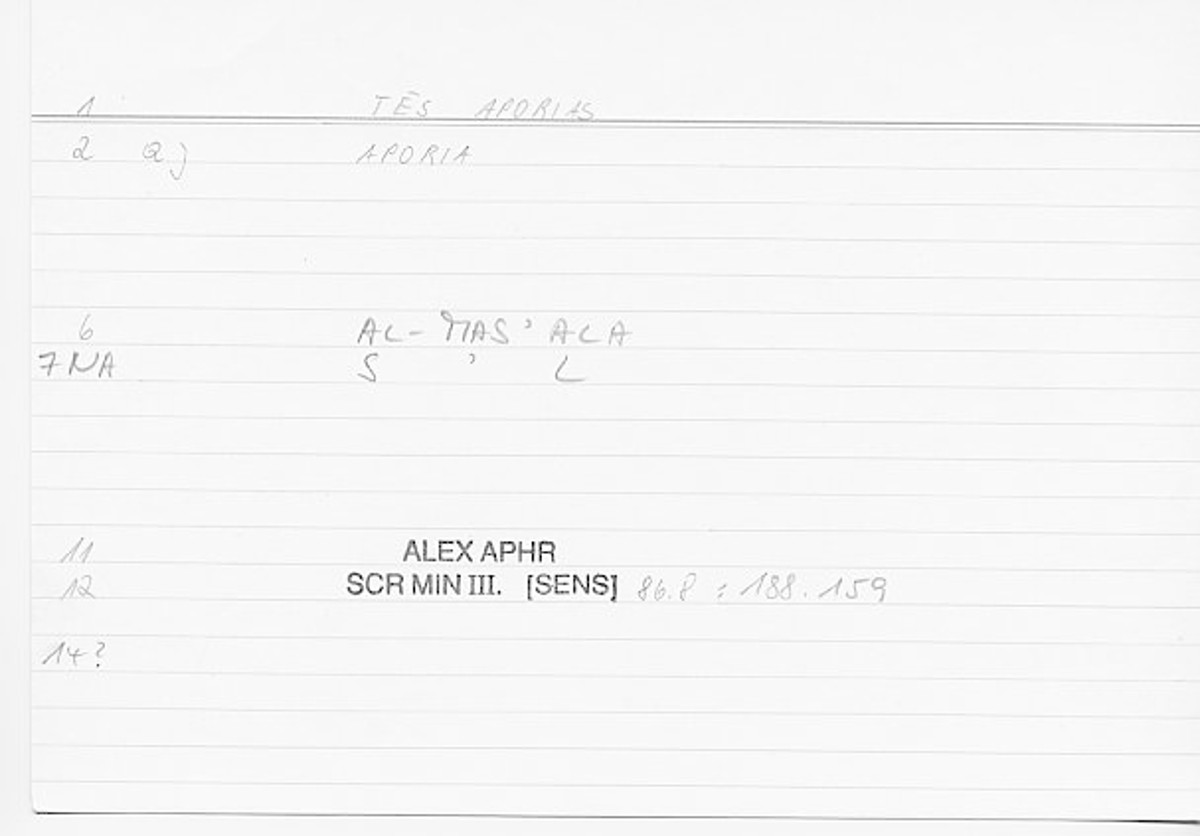 1 TĒS APORIAS
2 aj APORIA
6 AL-MAS'ALA
7NA S ' L
11 ALEX APHR
12 SCR MIN III. [SENS] 86.8 : 188.159
14?